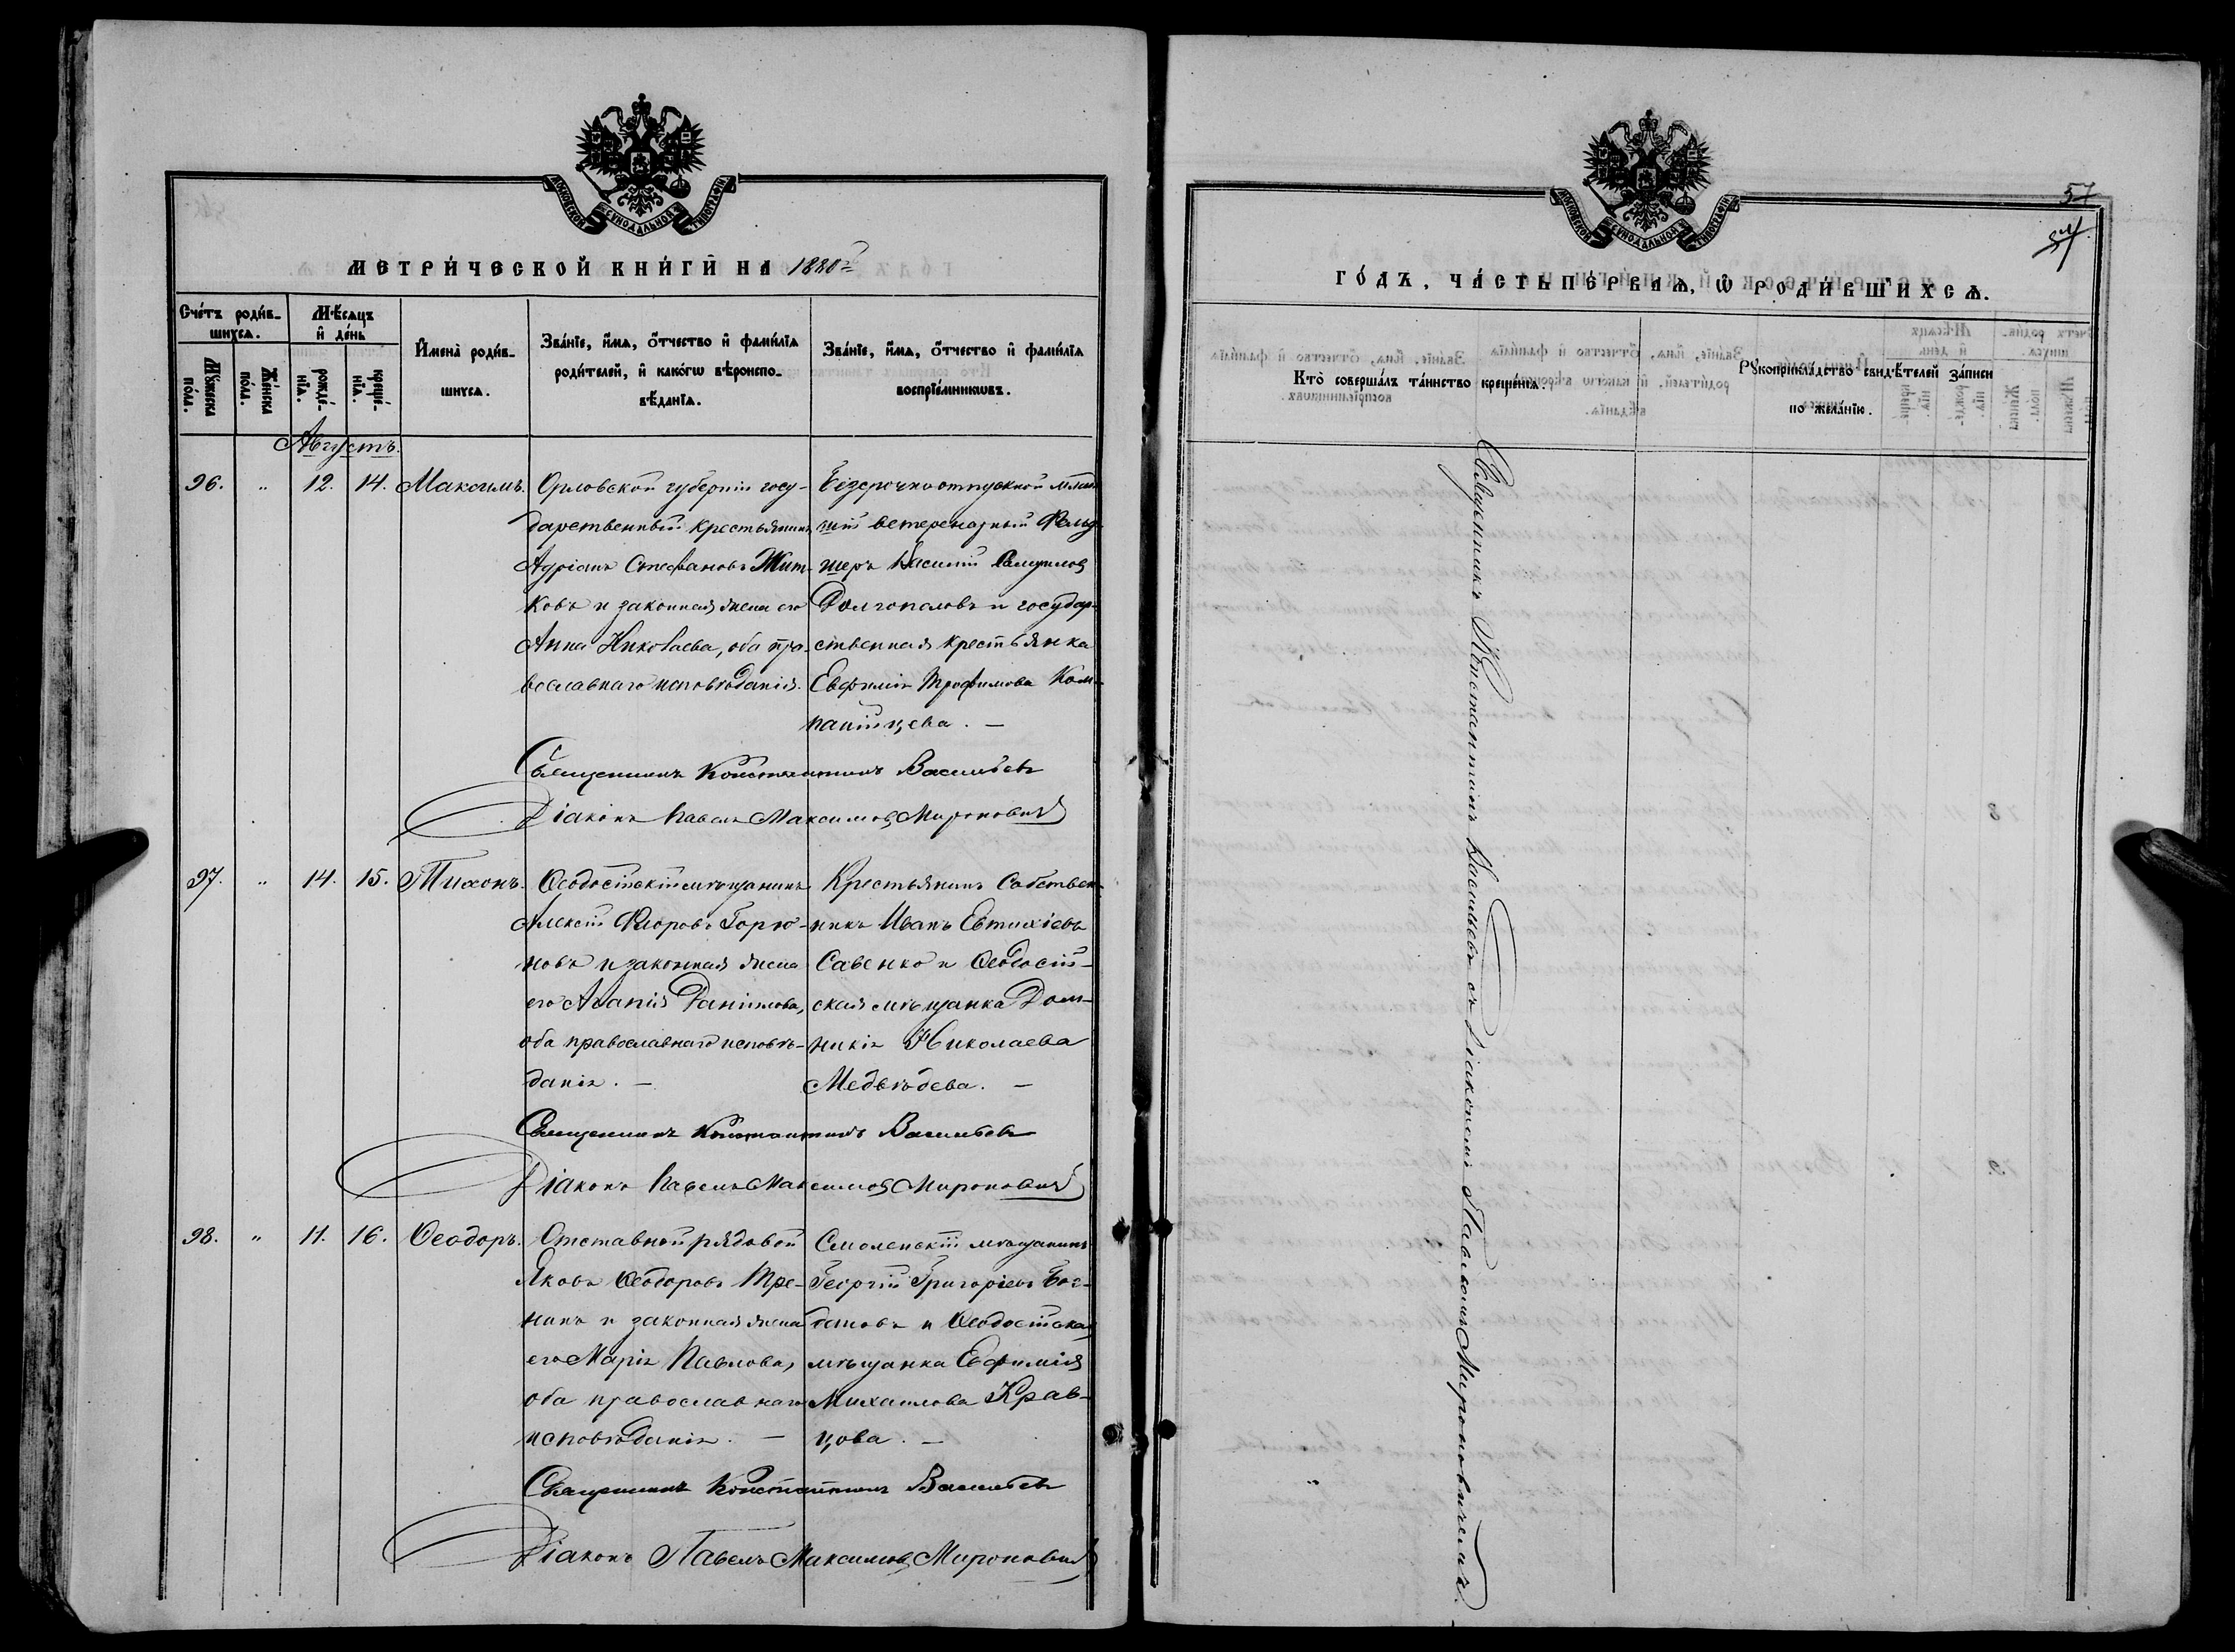 МОСКОВСКОЙ СѴНОДАЛЬНОЙ ТИПОГРАФІИ
МЕТРИ́ЧЕСКОЙ КНИ́ГИ НА 1880й
Сче́тъ роди́в-
шихсѧ.
Мѣ́сѧцъ
и҆ де́нь
Мꙋ́жеска
по́ла.
Же́нска
по́ла.
рожде́-
нїѧ.
креще́-
нїѧ.
И҆мена̀ роди́в-
шихсѧ.
Зва́нїе, и҆́мѧ, ѻ҆́тчество и҆ фами́лїѧ
роди́телей, и҆ како́гѡ вѣроиспо-
вѣ́данїѧ.
Зва́нїе, и҆́мѧ, ѻ҆́тчество и҆ фами́лїѧ
воспрїе́мникѡвъ.
Августъ.
96. " 12. 14. Максимъ.
Орловской губерніи госу-
дарственный крестьянинъ
Адріанъ Стефановъ Жит-
ковъ и законная жена его
Анна Николаева, оба пра-
вославнаго исповѣданія.
Безсрочно отпускной млад-
шій ветеренарный Фельд-
шеръ Василій
Долгополовъ и государ-
ственная крестьянка
Евфимія Трофимова Ком-
панійцева. —
Священникъ Константинъ Васильевъ
Діаконъ Павелъ Максимовъ Мироновичъ
97. " 14. 15. Тихонъ.
Ѳеодосійскій мѣщанинъ
Алексій Флоровъ Горю-
новъ и законная жена
его Агапія Даніилова,
оба православнаго исповѣ-
данія. —
Крестьянинъ Собствен-
никъ Иванъ Евтихіевъ
Савенко и Ѳеодосій-
ская мѣщанка Дом-
никія Николаева
Медвѣдева. —
Священникъ Константинъ Васильевъ
Діаконъ Павелъ Максимовъ Мироновичъ
98. " 11. 16. Ѳеодоръ.
Отставной рядовой
Яковъ Ѳеодоровъ Тре-
нинъ и законная жена
его Марія Павлова,
оба православнаго
исповѣданія. —
Смоленскій мѣщанинъ
Георгій Григоріевъ Бог-
дановъ и Ѳеодосійская
мѣщанка Евфимія
Михаилова Крав-
цова. —
Священникъ Константинъ Васильевъ
Діаконъ Павелъ Максимовъ Мироновичъ
МОСКОВСКОЙ СѴНОДАЛЬНОЙ ТИПОГРАФІИ
57
ГО́ДЪ, ЧА́СТЬ ПЕ́РВАѦ, Ѡ҆ РОДИ́ВШИХСѦ.
Кто̀ соверша́лъ та́инство креще́нїѧ.
Рꙋкоприкла́дство свидѣ́телей за́писи
по жела́нїю.
Священникъ Константинъ Васильевъ съ Діакономъ Павломъ Мироновичемъ.